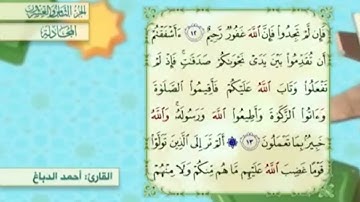 الجزء الثامن والعشرون
المجادلة
فَإِن لَّمْ تَجِدُوا۟ فَإِنَّ ٱللَّهَ غَفُورٌ رَّحِيمٌ ١٢ ءَأَشْفَقْتُمْ
أَن تُقَدِّمُوا۟ بَيْنَ يَدَىْ نَجْوَىٰكُمْ صَدَقَٰتٍ ۚ فَإِذْ لَمْ
تَفْعَلُوا۟ وَتَابَ ٱللَّهُ عَلَيْكُمْ فَأَقِيمُوا۟ ٱلصَّلَوٰةَ
وَءَاتُوا۟ ٱلزَّكَوٰةَ وَأَطِيعُوا۟ ٱللَّهَ وَرَسُولَهُۥ ۚ وَٱللَّهُ
خَبِيرٌۢ بِمَا تَعْمَلُونَ ١٣ أَلَمْ تَرَ إِلَى ٱلَّذِينَ تَوَلَّوْا۟
قَوْمًا غَضِبَ ٱللَّهُ عَلَيْهِم مَّا هُم مِّنكُمْ وَلَا مِنْهُمْ
القارئ: أحمد الدباغ